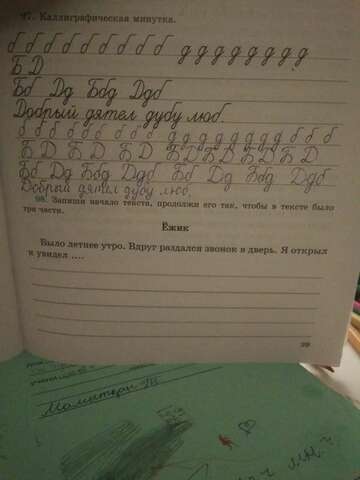 97. Каллиграфическая минутка.
б б б б б б б б б д д д д д д д д
Б Д
Бб Дд Ббд Ддб
Добрый дятел дубу люб.
б б б б б б б б б д д д д д д д д б б б
Б Д Б Д Б Д Б Д Б Д Б Д Б Д
Бб Дд Ббд Ддб Бб Дд Ббд Ддб
Добрый дятел дубу люб.
98. Запиши начало текста, продолжи его так, чтобы в тексте было
три части.
Ёжик
Было летнее утро. Вдруг раздался звонок в дверь. Я открыл
и увидел ....
39